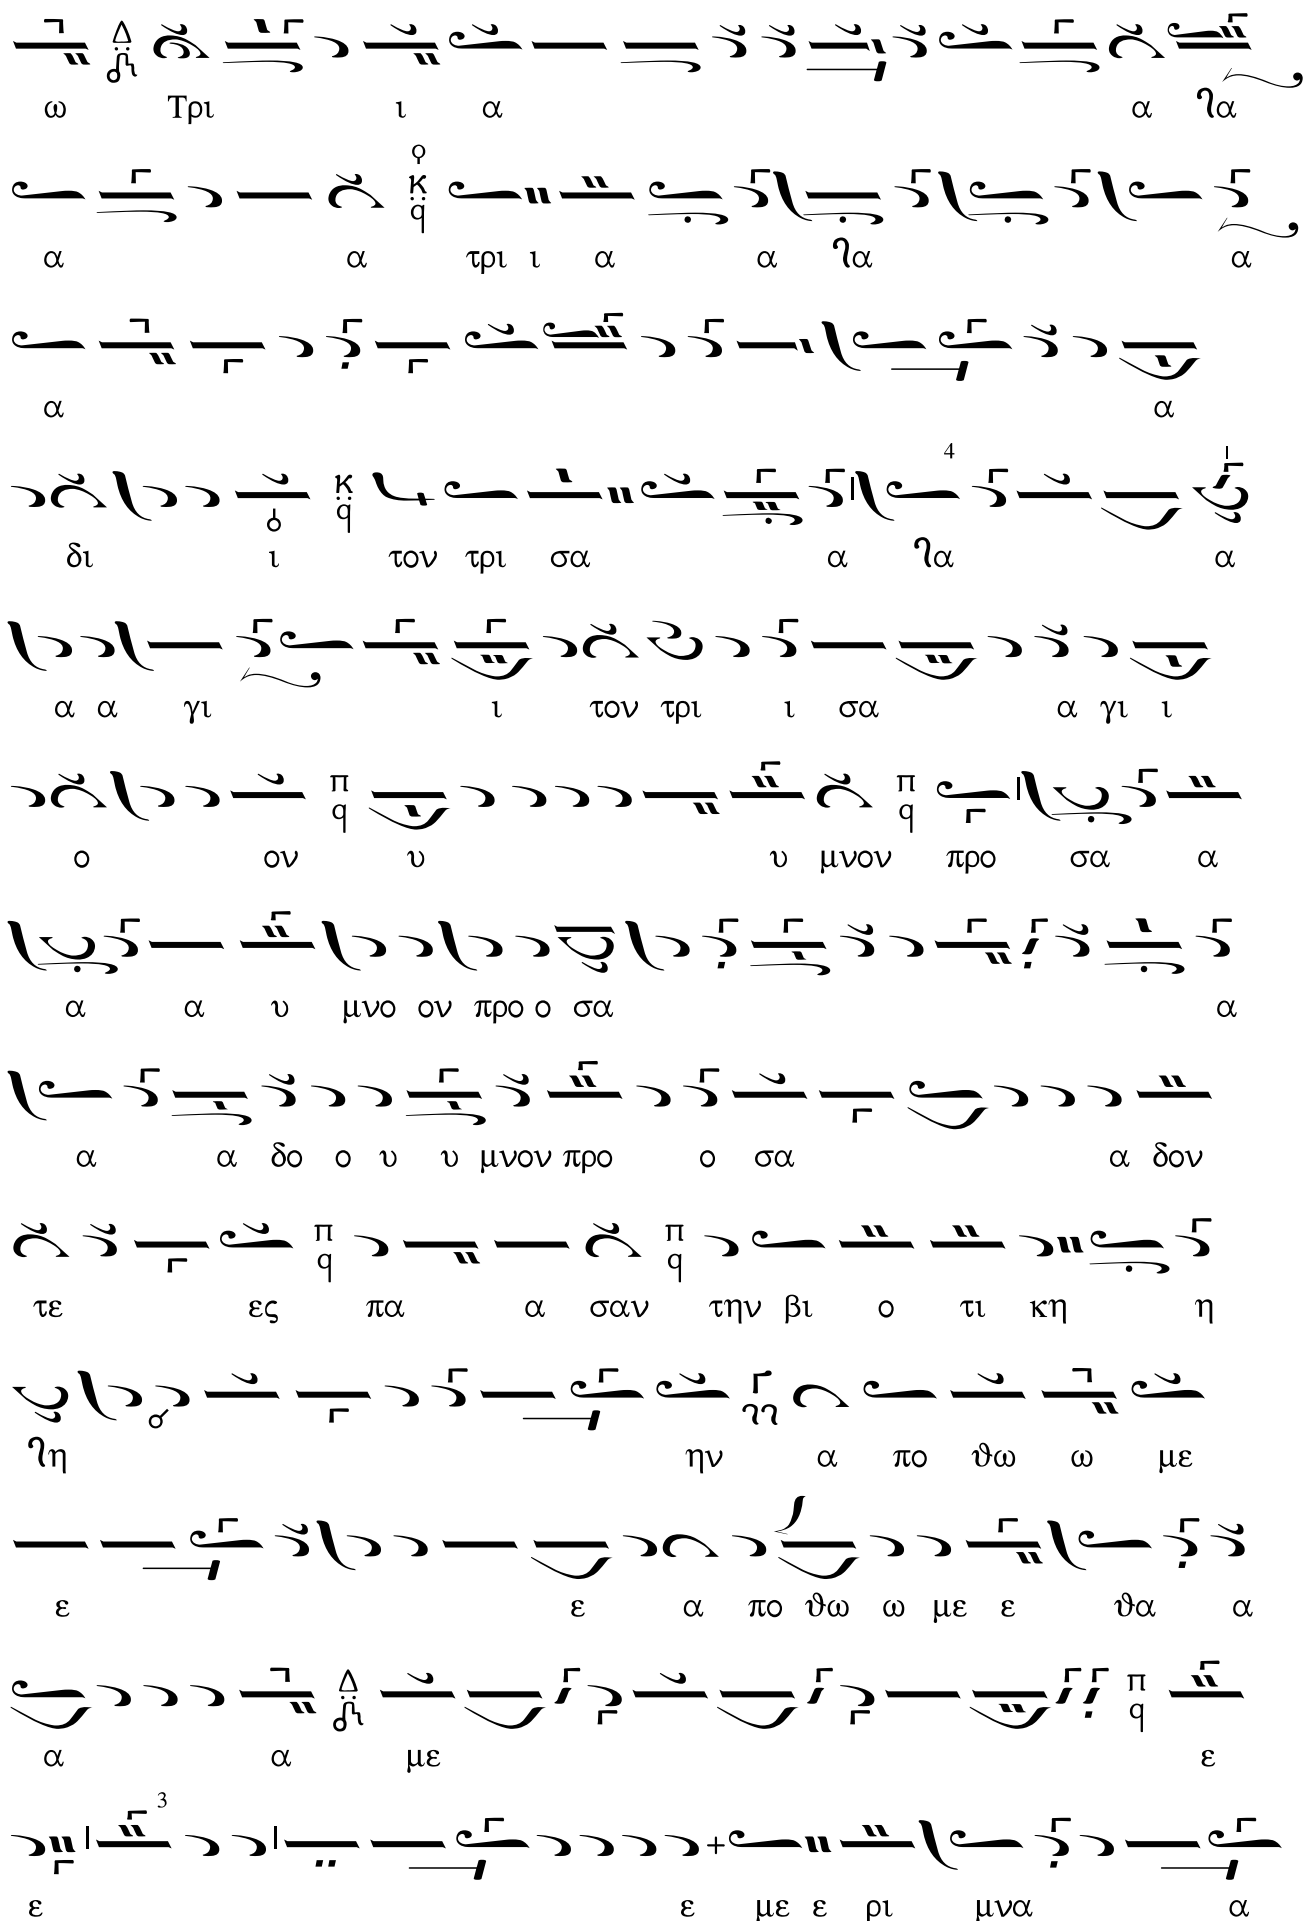 Δ
ω Τρι ι α α ʅα
κ q
α α τρι ι α α ʅα α
α α
4
κ q
δι ι τον τρι σα α ʅα α
α α γι ι τον τρι ι σα α γι ι
π q π q
ο ον υ υ μνον προ σα α
α α υ μνο ον προ ο σα α
α α δο ο υ υ μνον προ ο σα α δον
π q π q
τε ες πα α σαν την βι ο τι κη η
ʅη ην α πο ϑω ω με
ε ε α πο ϑω ω με ε ϑα α
Δ π q
α α με ε
3
ε ε με ε ρι μνα α